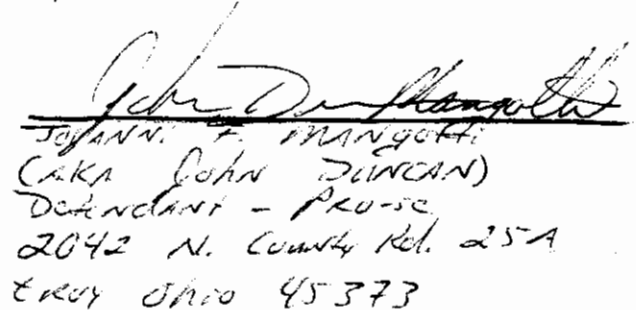 John Duncan Mangotti
JOVANNI F. MANGOTTI
(AKA John DUNCAN)
Defendant - Pro-se
2042 N. County Rd. 25A
troy Ohio 45373